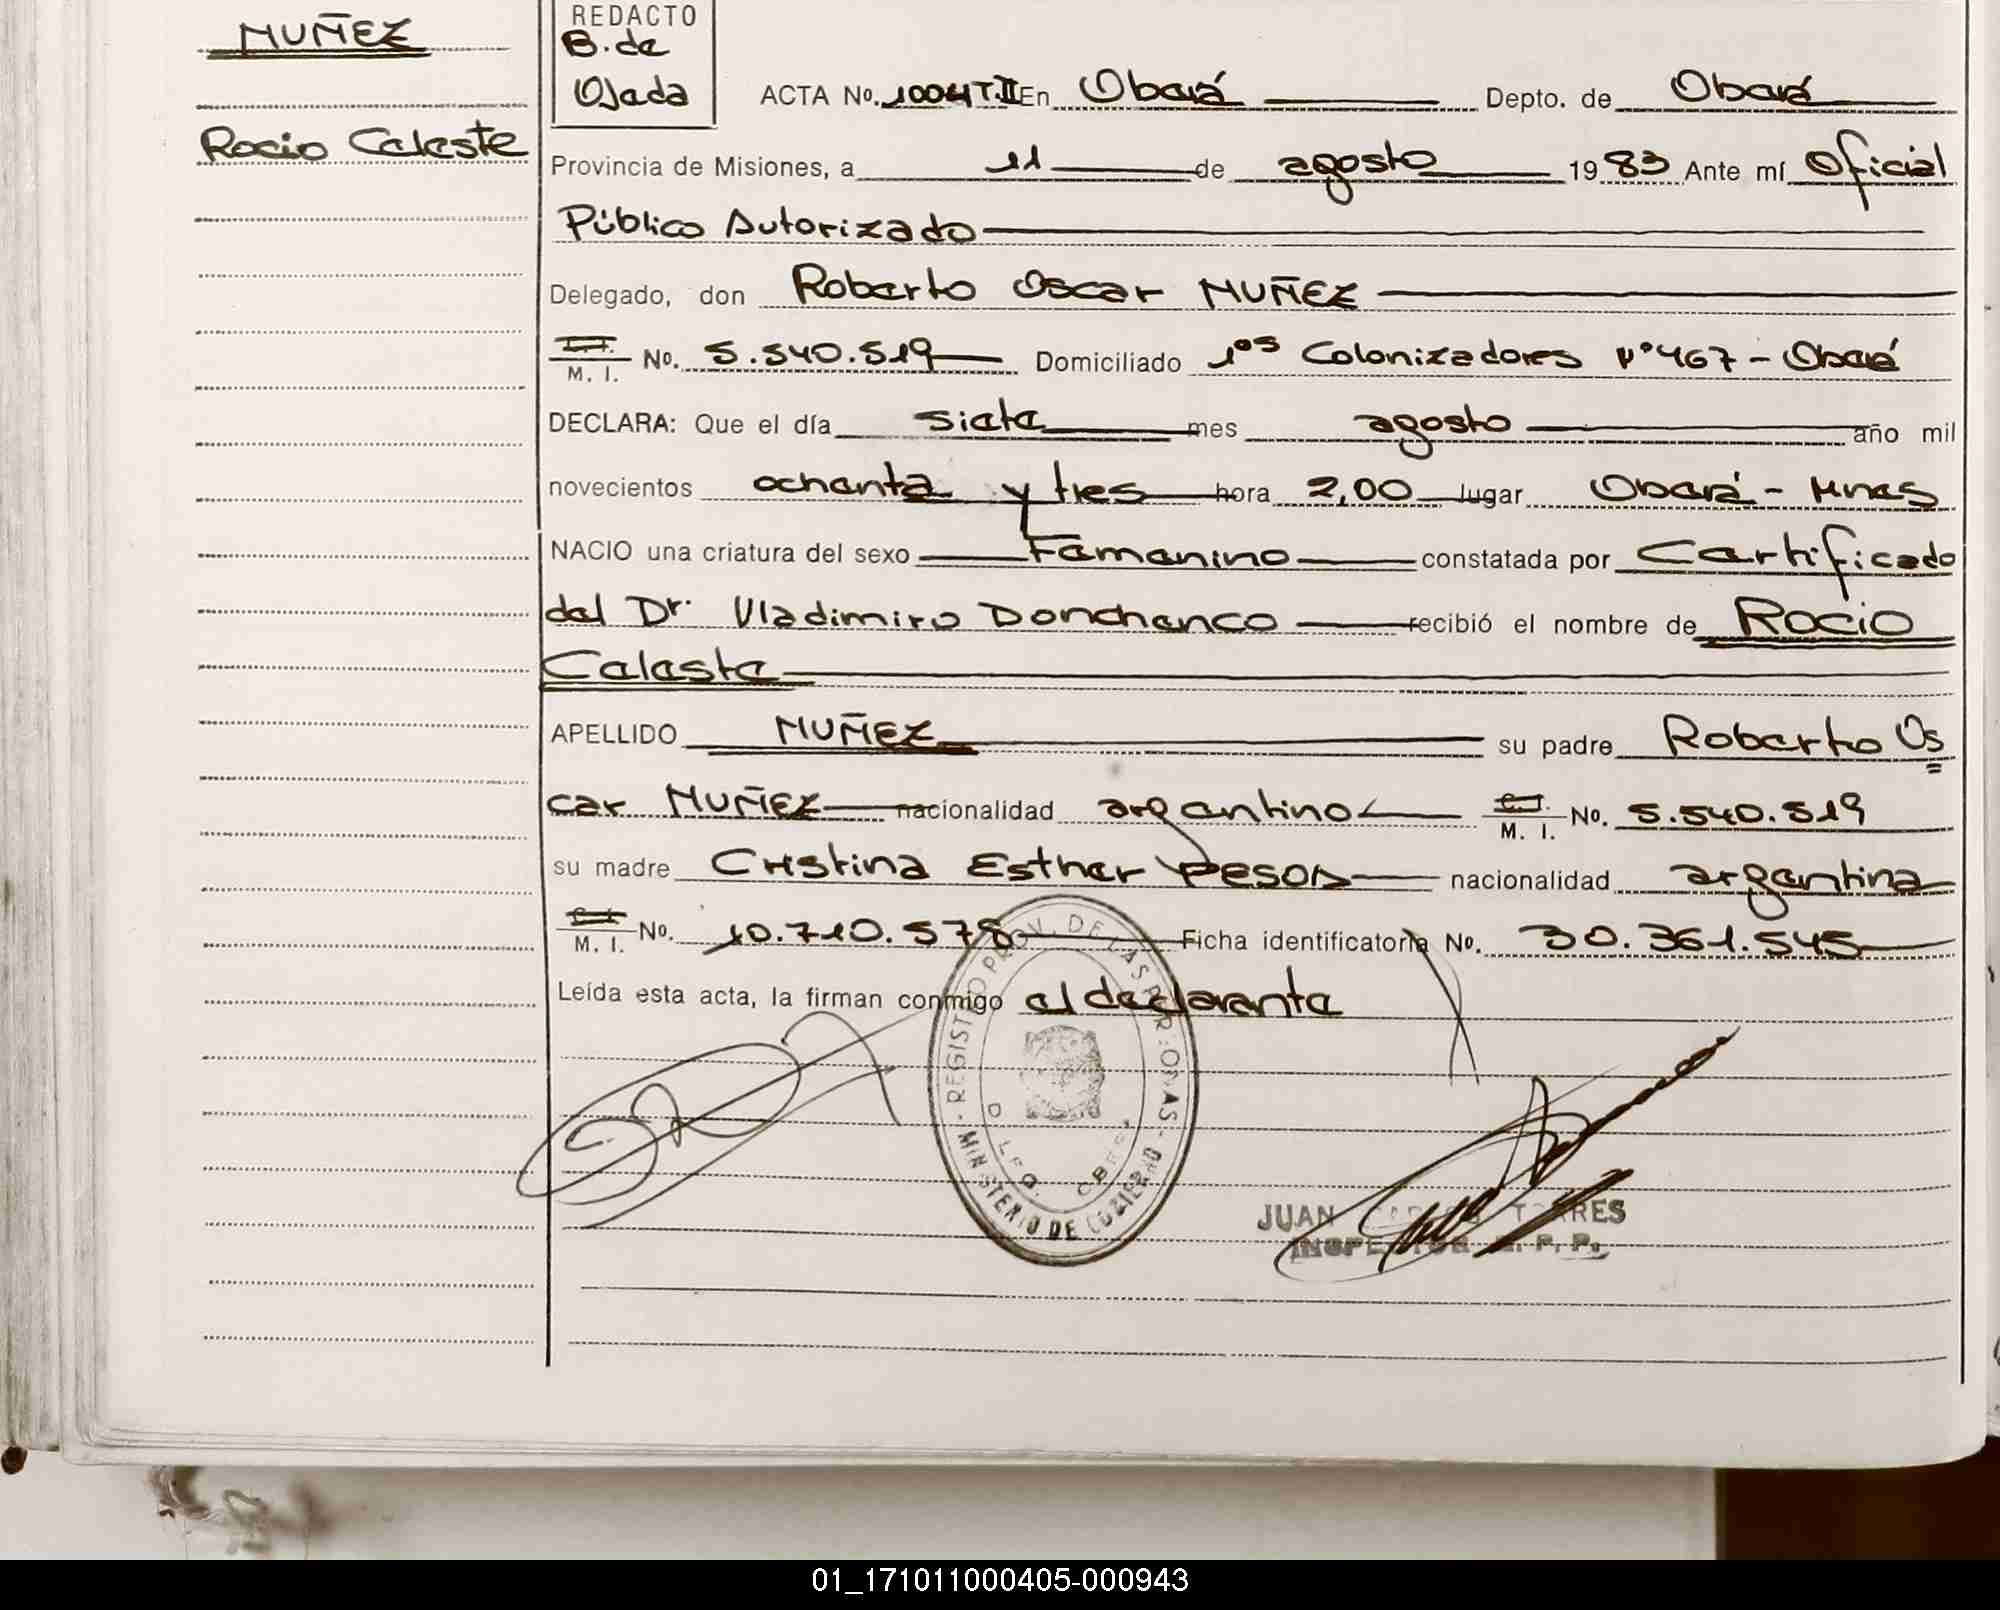 MUÑEZ
Rocio Celeste
REDACTO
B. de
Ojeda
ACTA No. 1004 T.II En Oberá Depto. de Oberá
Provincia de Misiones, a 11 de agosto 1983 Ante mí Oficial
Público Autorizado
Delegado, don Roberto Oscar MUÑEZ
M. I. No. 5.540.519 Domiciliado 1os Colonizadores Nº 467 - Oberá
DECLARA: Que el día siete mes agosto año mil
novecientos ochenta y tres hora 2,00 lugar Oberá - Mnes
NACIO una criatura del sexo Femenino constatada por Certificado
del Dr. Vladimiro Donchenco recibió el nombre de ROCIO
Celeste
APELLIDO MUÑEZ su padre Roberto Os
car MUÑEZ nacionalidad argentino M. I. No. 5.540.519
su madre Cristina Esther nacionalidad argentina
M. I. No. 10.710.578 Ficha identificatoria No. 30.361.545
Leída esta acta, la firman conmigo el declarante
REGISTRO PROV. DE LAS PERSONAS
MINISTERIO DE GOBIERNO
JUAN CARLOS TORRES
INSPECTOR R. P. P.
01_171011000405-000943